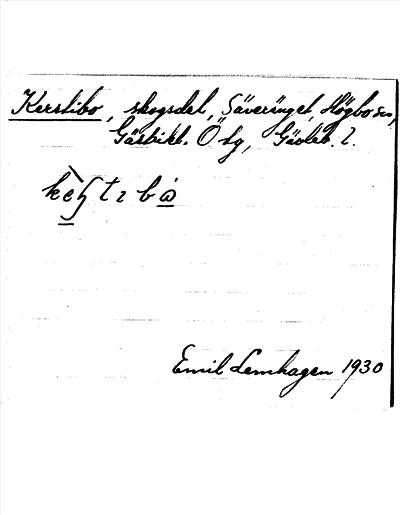 Kerstibo, skogsdel, Säveränget, Högbo sn,
Gästrikl. Ö tg, Gävleb. l.
Emil Lemhagen 1930